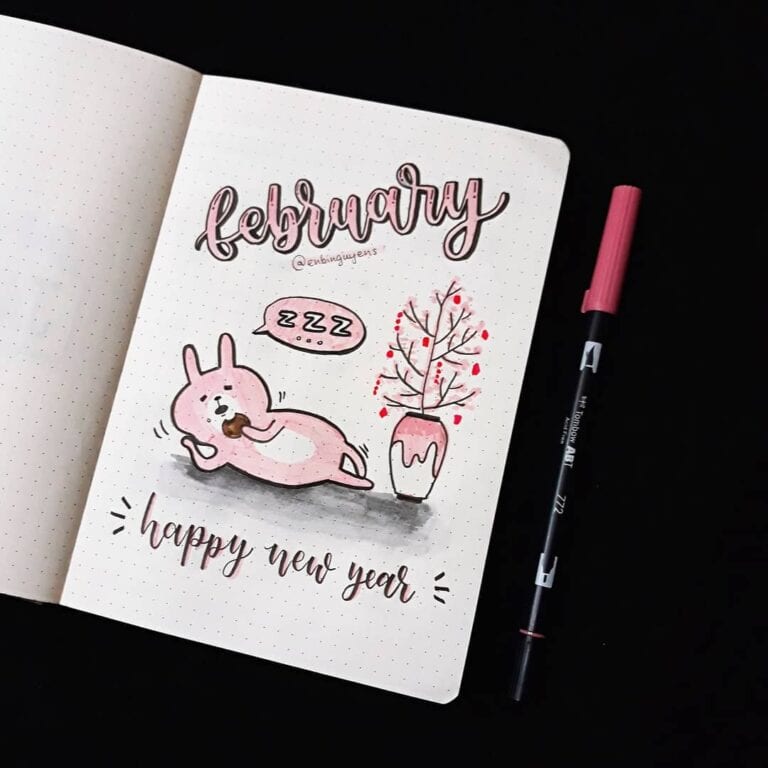 february
@enbinguyens
zzz
...
happy new year
Tombow ABT
772